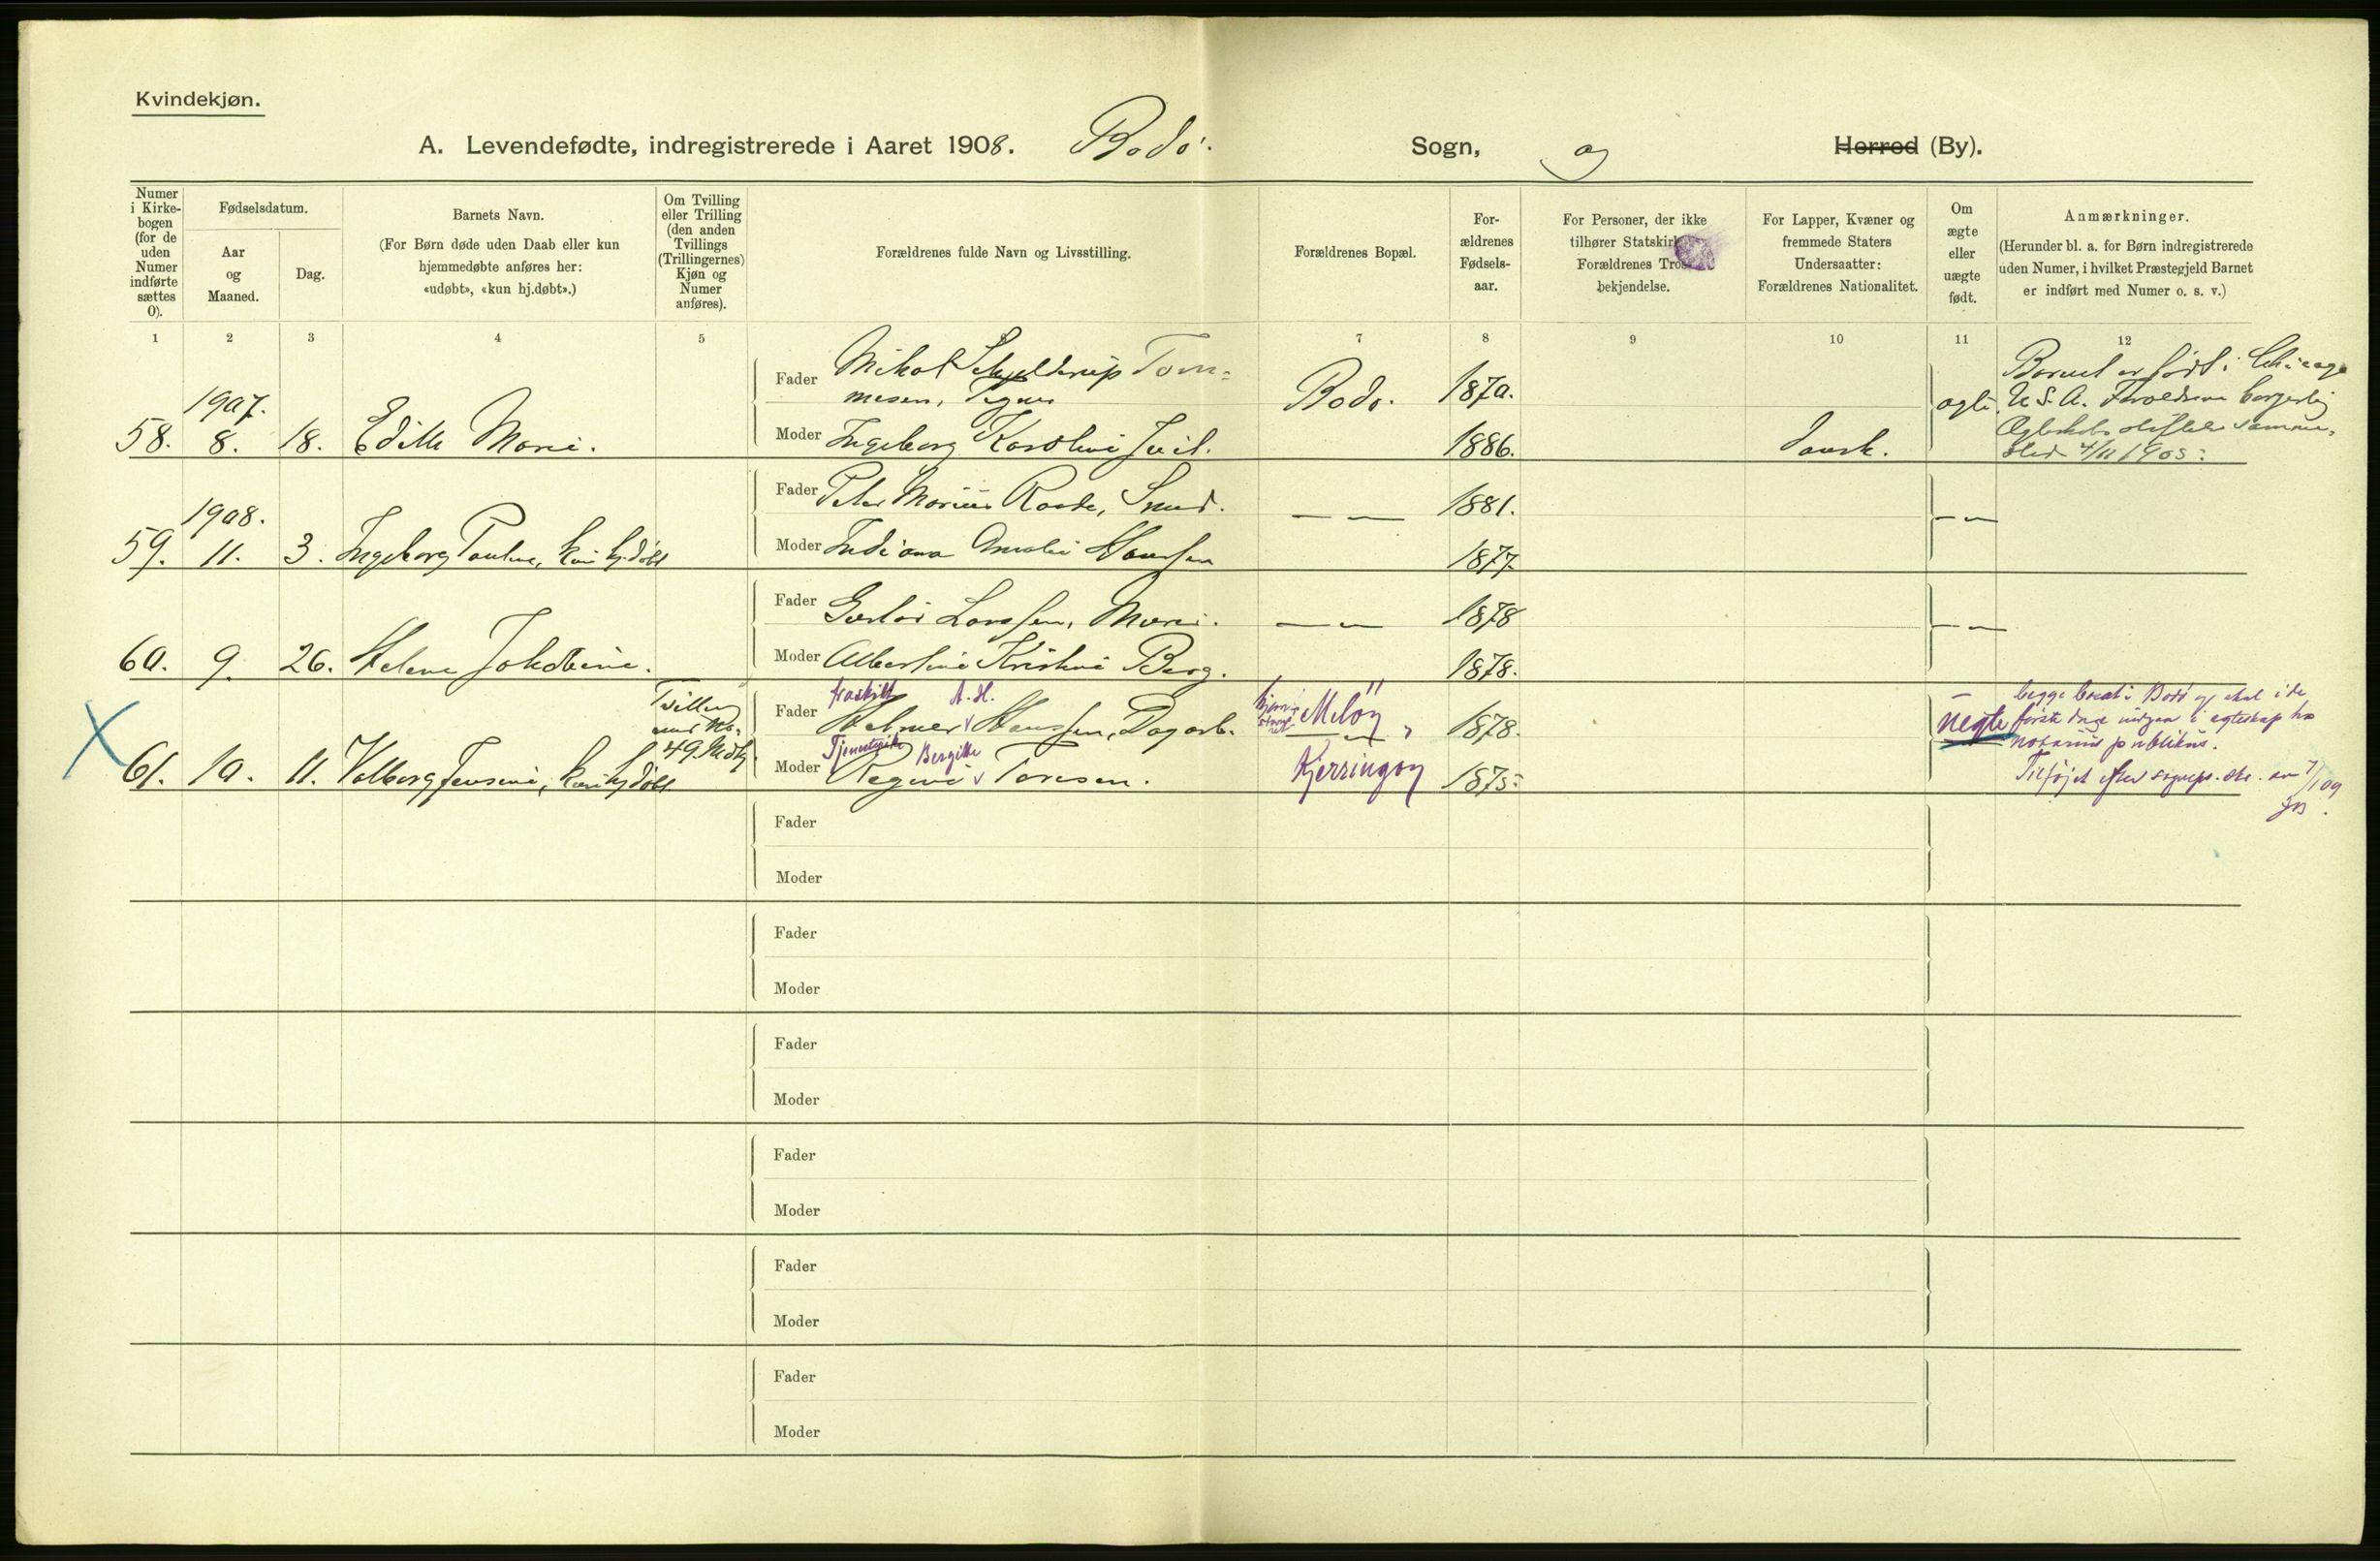 Kvindekjøn.
A. Levendefødte, indregistrerede i Aaret 1908. Bodø. Sogn, og Herred (By).
Numer i Kirkebogen (for de uden Numer indførte sættes 0).
Fødselsdatum.
Aar og Maaned.
Dag.
Barnets Navn.
(For Børn døde uden Daab eller kun
hjemmedøbte anføres her:
«udøbt», «kun hj.døbt».)
Om Tvilling
eller Trilling
(den anden
Tvillings
(Trillingernes)
Kjøn og
Numer
anføres).
Forældrenes fulde Navn og Livsstilling.
Forældrenes Bopæl.
For-
ældrenes
Fødsels-
aar.
For Personer, der ikke
tilhører Statskirken
Forældrenes Tros-
bekjendelse.
For Lapper, Kvæner og
fremmede Staters
Undersaatter:
Forældrenes Nationalitet.
Om
ægte
eller
uægte
født.
Anmærkninger.
(Herunder bl. a. for Børn indregistrerede
uden Numer, i hvilket Præstegjeld Barnet
er indført med Numer o. s. v.)
1 2 3 4 5 7 8 9 10 11 12
Fader Mikal Schjelderup Tom-
mesen, Bodø. 1870.
1907.
58. 8. 18. Edith Marie.
Moder Ingeborg Karoline Juel. 1886. dansk.
ægte
Barnet er født i Chicago
U.S.A. Forældrene borgerlig
Ægteskab stiftet samme-
sted 4/11 1905.
Fader Peter Marius Roade, Smed. — — 1881. — —
1908.
59. 11. 3. Ingeborg Pauline, kun hj.døbt
Moder Indiana Amalie Hansen 1877
Fader Larssen, Murer. — — 1878 — —
60. 9. 26. Helene Jakobine.
Moder Albertine Kristine Berg. 1878.
Tvilling
med No.
49 Mdkj.
fraskilt A. H.
Fader Helmer Hanssen, Dagarb. Meløy 1878.
X 61. 10. 11. Valborg Jensine, kun hj.døbt
Tjenestepike Bergitte
Moder Regine Toresen. Kjerringøy 1875.
uegte
begge bosat i Bodø og skal i de
første dage indgaa i egteskap hos
notarius publikus.
Tilføjet efter sognepr. skr. av 7/1 09
Fader
Moder
Fader
Moder
Fader
Moder
Fader
Moder
Fader
Moder
Fader
Moder